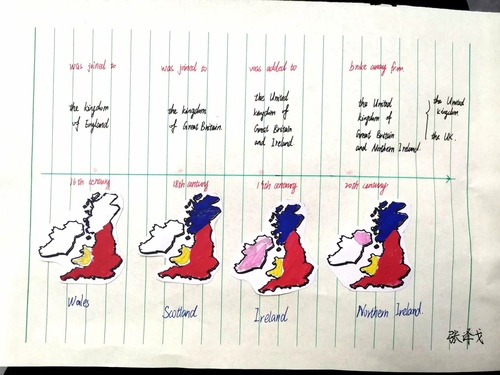 was joined to
was joined to
was added to
broke away from
the kingdom
of England
the kingdom
of Great Britain
the United
kingdom of
Great Britain
and Ireland
the United
kingdom of
Great Britain
and Northern Ireland
the United
kingdom
the UK.
16th century
18th century
19th century
20th century
Wales
Scotland
Ireland
Northern Ireland.
张泽戈